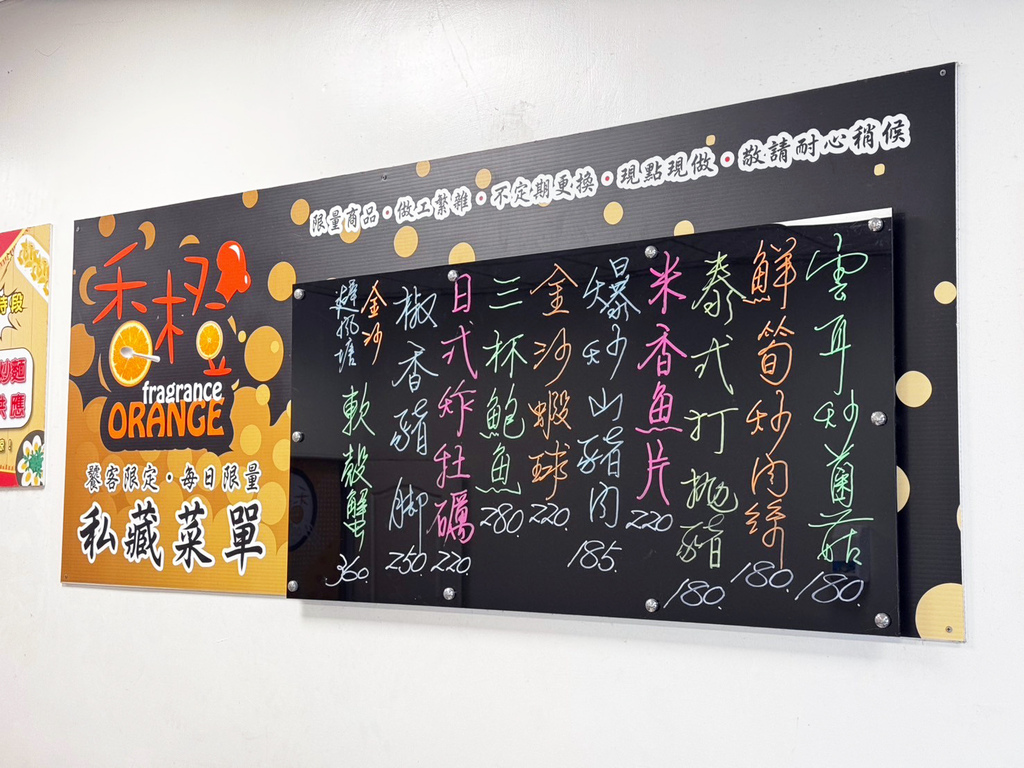 限量商品•做工繁雜•不定期更換•現點現做•敬請耐心稍候
禾橙
fragrance
ORANGE
饕客限定•每日限量
私藏菜單
雲耳炒菌菇
180.
鮮筍炒肉絲
180.
泰式打拋豬
180.
米香魚片
220
爆炒山豬肉
185.
金沙蝦球
220.
三杯鮑魚
280.
日式炸牡蠣
220.
椒香豬腳
250.
金沙
避風塘
軟殼蟹
360.
時段
炒麵
供應